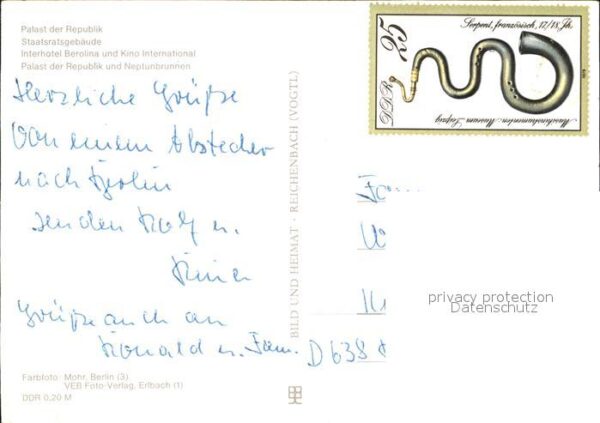 Palast der Republik
Staatsratsgebäude
Interhotel Berolina und Kino International
Palast der Republik und Neptunbrunnen
Herzliche Grüße
von einem Abstecher
nach Berlin
senden Rolf u.
Grüße auch an
Ronald u. Fam.
Farbfoto: Mohr, Berlin (3)
VEB Foto-Verlag, Erlbach (1)
DDR 0,20 M
BILD UND HEIMAT · REICHENBACH (VOGTL)
Serpent, französisch, 17./18. Jh.
25
DDR
Musikinstrumenten-Museum Leipzig
Fam
D 638
privacy protection
Datenschutz